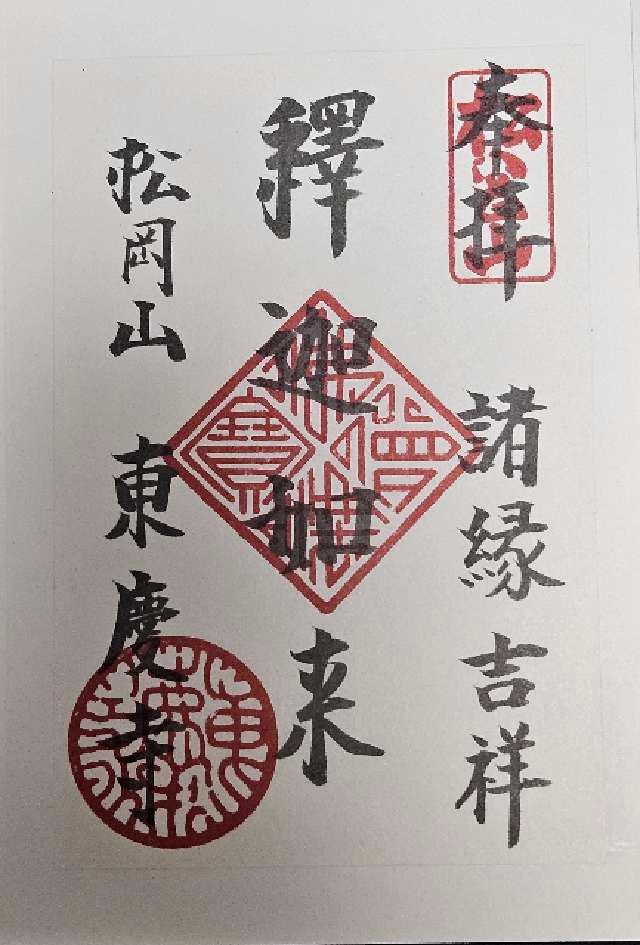 奉拝 諸縁吉祥
釋迦如来
松岡山 東慶寺